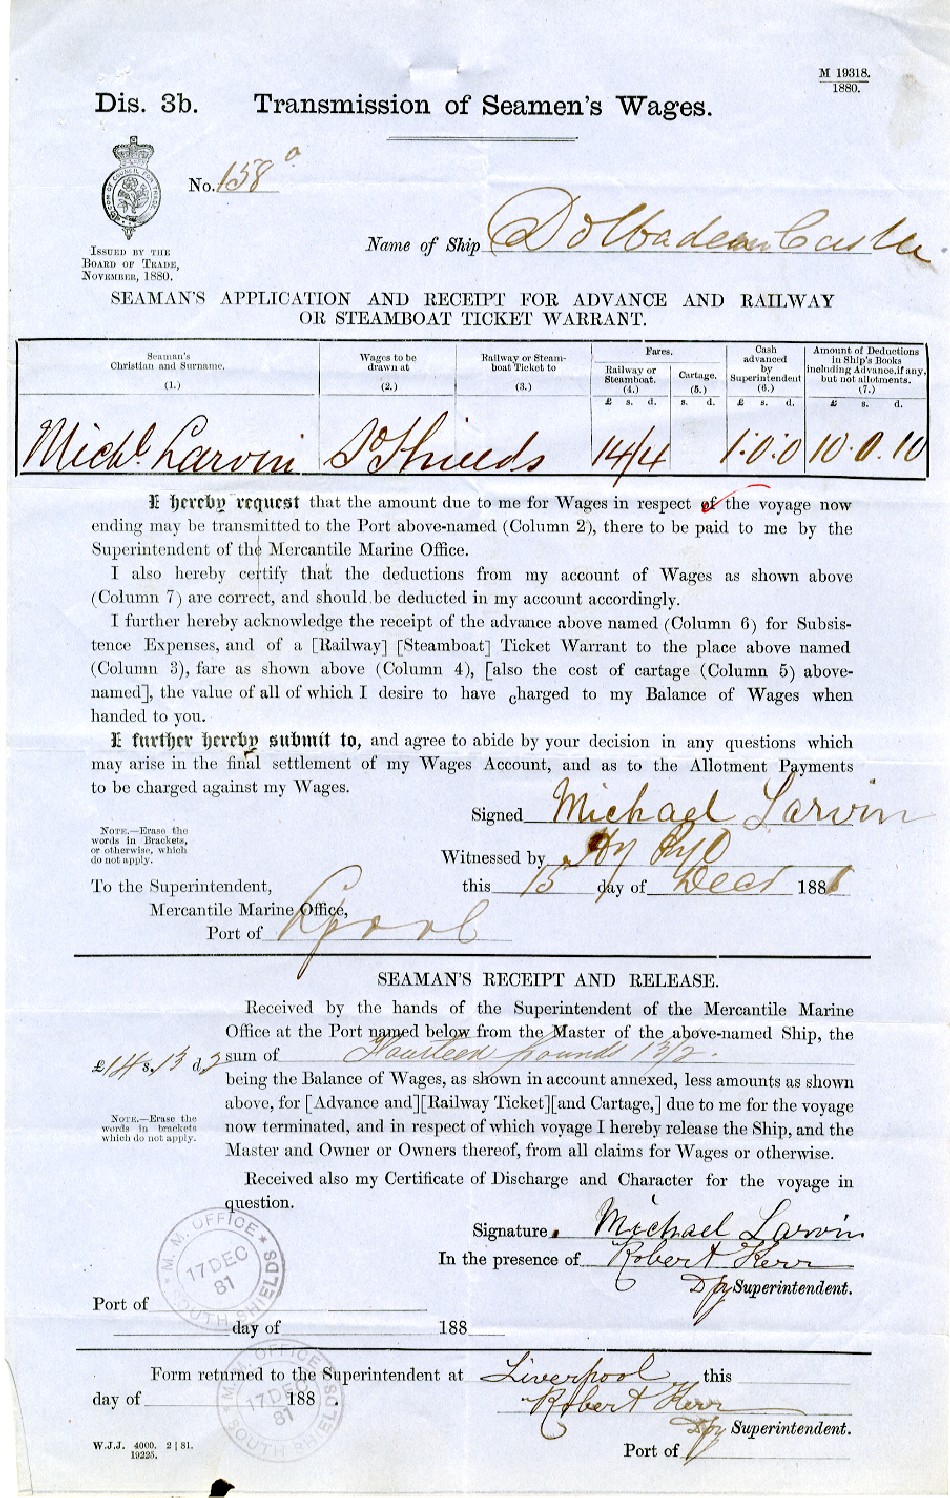 M 19318.
1880.
Dis. 3b. Transmission of Seamen's Wages.
No. 158
Name of Ship Dolbadarn Castle
ISSUED BY THE
BOARD OF TRADE,
NOVEMBER, 1880.
SEAMAN'S APPLICATION AND RECEIPT FOR ADVANCE AND RAILWAY
OR STEAMBOAT TICKET WARRANT.
Seaman's
Christian and Surname.
(1.)
Wages to be
drawn at
(2.)
Railway or Steam-
boat Ticket to
(3.)
Fares.
Railway or
Steamboat.
(4.)
Cartage.
(5.)
Cash
advanced
by
Superintendent
(6.)
Amount of Deductions
in Ship's Books
including Advance, if any,
but not allotments.
(7.)
£ s. d. s. d. £ s. d. £ s. d.
Michl Larvin So Shields 14/4 1.0.0 10.0.10
I hereby request that the amount due to me for Wages in respect of the voyage now
ending may be transmitted to the Port above-named (Column 2), there to be paid to me by the
Superintendent of the Mercantile Marine Office.
I also hereby certify that the deductions from my account of Wages as shown above
(Column 7) are correct, and should be deducted in my account accordingly.
I further hereby acknowledge the receipt of the advance above named (Column 6) for Subsis-
tence Expenses, and of a [Railway] [Steamboat] Ticket Warrant to the place above named
(Column 3), fare as shown above (Column 4), [also the cost of cartage (Column 5) above-
named], the value of all of which I desire to have charged to my Balance of Wages when
handed to you.
I further hereby submit to, and agree to abide by your decision in any questions which
may arise in the final settlement of my Wages Account, and as to the Allotment Payments
to be charged against my Wages.
Signed Michael Larvin
NOTE.—Erase the
words in Brackets,
or otherwise, which
do not apply.
Witnessed by Hy
To the Superintendent, this 15 day of Decr 1881
Mercantile Marine Office,
Port of Lpool
SEAMAN'S RECEIPT AND RELEASE.
Received by the hands of the Superintendent of the Mercantile Marine
Office at the Port named below from the Master of the above-named Ship, the
£14 s. 13 d. 2 sum of Fourteen pounds 13/2.
being the Balance of Wages, as shown in account annexed, less amounts as shown
above, for [Advance and][Railway Ticket][and Cartage,] due to me for the voyage
NOTE.—Erase the
words in brackets
which do not apply.
now terminated, and in respect of which voyage I hereby release the Ship, and the
Master and Owner or Owners thereof, from all claims for Wages or otherwise.
Received also my Certificate of Discharge and Character for the voyage in
question.
Signature Michael Larvin
In the presence of Robert Kerr
Dpy Superintendent.
M. M. OFFICE
17 DEC
81
SOUTH SHIELDS
Port of
day of 188
Form returned to the Superintendent at Liverpool this
day of 188 . Robert Kerr
Dpy Superintendent.
Port of
M. M. OFFICE
17 DEC
81
SOUTH SHIELDS
W.J.J. 4000. 2|81.
19225.